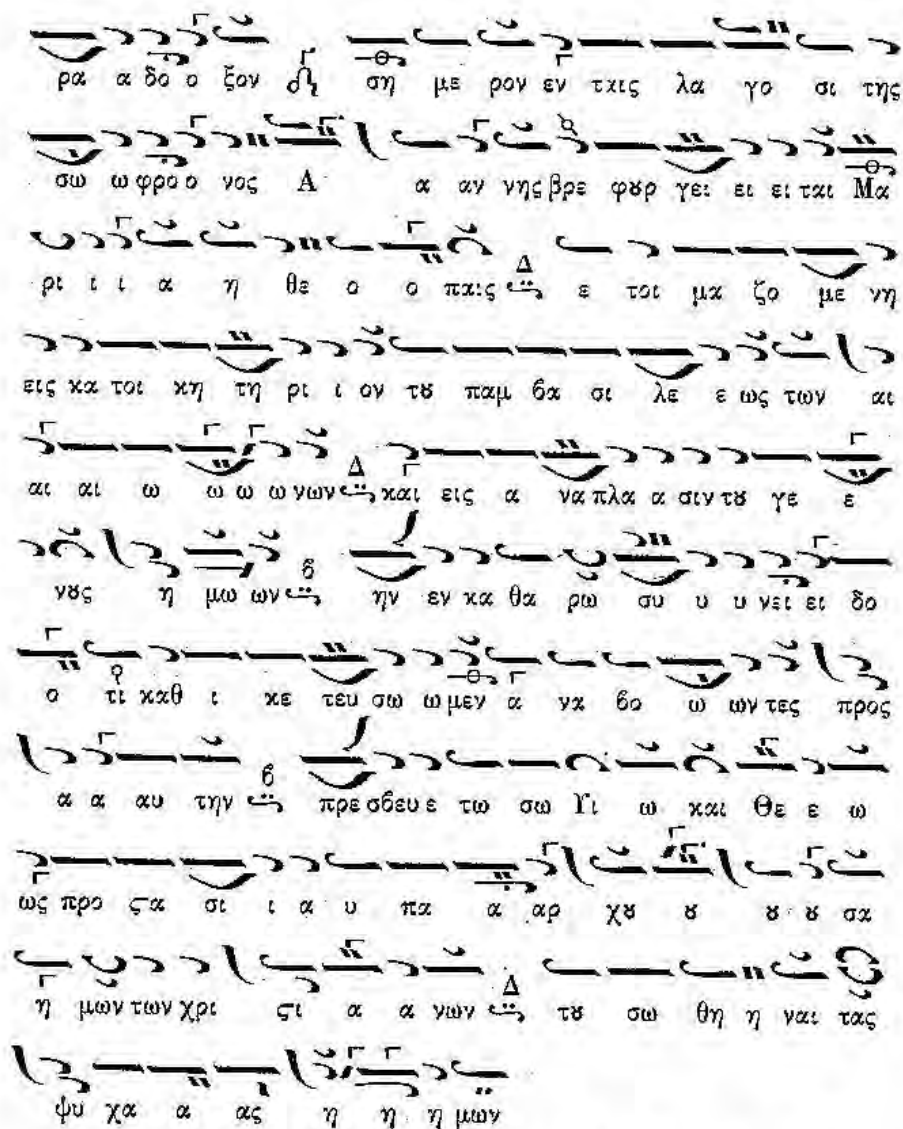 ρα α δο ο ξον ση με ρον εν ταις λα γο σι της
σω ω φρο ο νος Α α αν νης βρε φȣρ γει ει ει ται Μα
ρι ι ι α η θε ο ο παις Δ ε τοι μα ζο με νη
εις κα τοι κη τη ρι ι ον τȣ παμ βα σι λε ε ως των αι
αι αι ω ω ω ω νων Δ και εις α να πλα α σιν τȣ γε ε
νȣς η μω ων β ην εν κα θα ρω συ υ υ νει ει δο
ο τι καθ ι κε τευ σω ω μεν α να βο ω ων τες προς
α α αυ την β πρε σβευ ε τω σω Υι ω και Θε ε ω
ως προ ϛα σι ι α υ πα α αρ χȣ ȣ ȣ ȣ σα
η μων των χρι ϛι α α νων Δ τȣ σω θη η ναι τας
ψυ χα α ας η η η μων